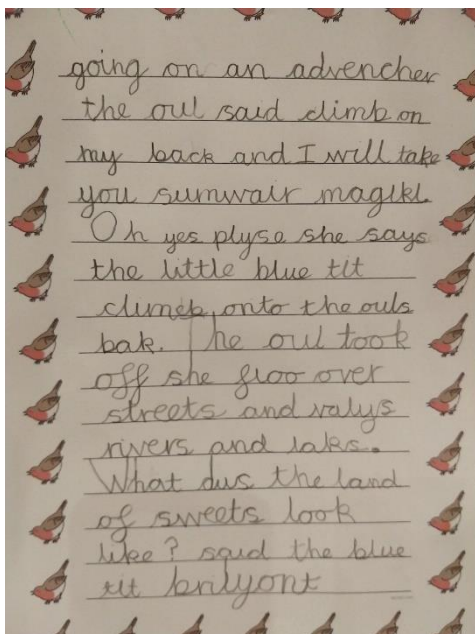 going on an advencher
the oul said climb on
my back and I will take
you sumwair magikl.
Oh yes plyse she says
the little blue tit
climeb onto the ouls
bak. The oul took
off she floo over
streets and valys
rivers and laks.
What dus the land
of sweets look
like? said the blue
tit brilyont